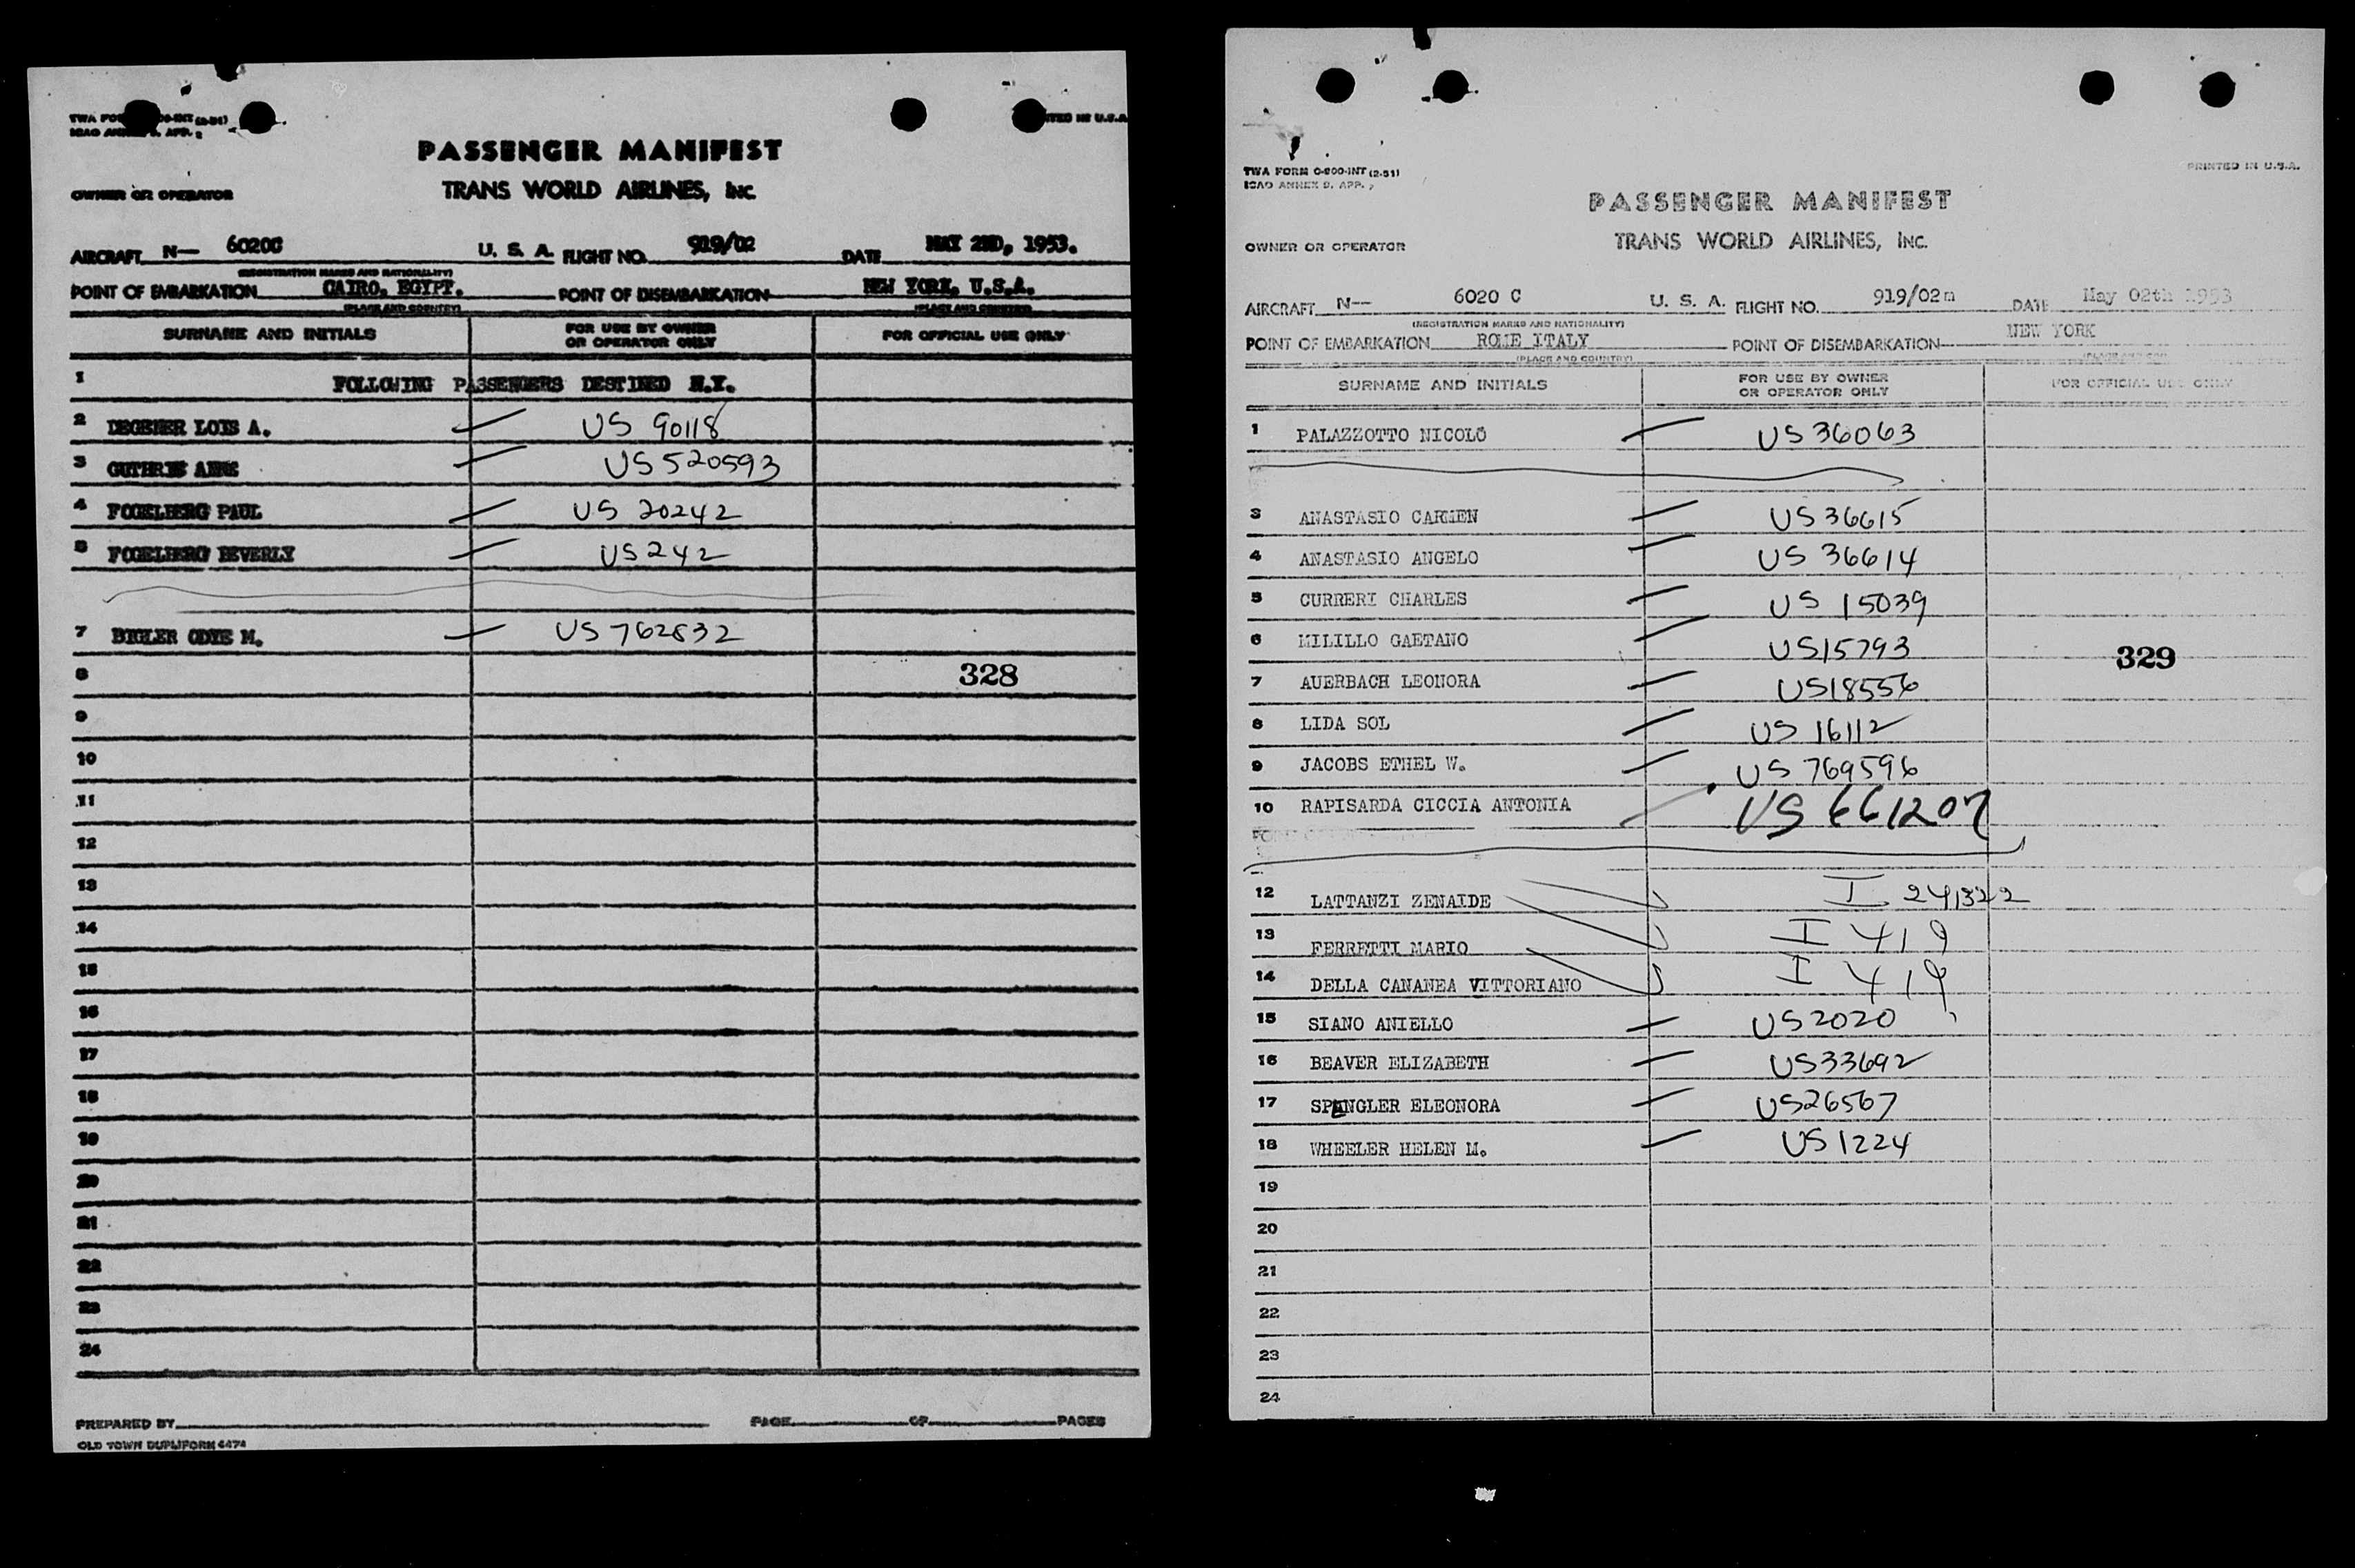 TWA FORM O-800-INT (2-51)
ICAO ANNEX 9, APP. 2
PASSENGER MANIFEST
OWNER OR OPERATOR
TRANS WORLD AIRLINES, INC.
AIRCRAFT N— 6020C U. S. A. FLIGHT NO. 919/02 DATE MAY 2ND, 1953.
(REGISTRATION MARKS AND NATIONALITY)
POINT OF EMBARKATION CAIRO, EGYPT. POINT OF DISEMBARKATION NEW YORK, U.S.A.
(PLACE AND COUNTRY) (PLACE AND COUNTRY)
SURNAME AND INITIALS FOR USE BY OWNER OR OPERATOR ONLY FOR OFFICIAL USE ONLY
1 FOLLOWING PASSENGERS DESTINED N.Y.
2 DEGENER LOIS A. US 90118
3 GUTHRIE US 520593
4 FOGELBERG PAUL US 20242
5 FOGELBERG BEVERLY US 242
7 BIGLER ODYE M. US 762832
8 328
9
10
11
12
13
14
15
16
17
18
19
20
21
22
23
24
PREPARED BY PAGE OF PAGES
OLD TOWN DUPLIFORM 6474
TWA FORM O-800-INT (2-51)
ICAO ANNEX 9, APP. 2
PRINTED IN U.S.A.
PASSENGER MANIFEST
OWNER OR OPERATOR
TRANS WORLD AIRLINES, INC.
AIRCRAFT N— 6020 C U. S. A. FLIGHT NO. 919/02m DATE May 02th 1953
(REGISTRATION MARKS AND NATIONALITY)
POINT OF EMBARKATION ROME ITALY POINT OF DISEMBARKATION NEW YORK
(PLACE AND COUNTRY)
SURNAME AND INITIALS FOR USE BY OWNER OR OPERATOR ONLY FOR OFFICIAL USE ONLY
1 PALAZZOTTO NICOLO US 36063
3 ANASTASIO CARMEN US 36615
4 ANASTASIO ANGELO US 36614
5 CURRERI CHARLES US 15039
6 MILILLO GAETANO US 15793
329
7 AUERBACH LEONORA US 18556
8 LIDA SOL US 16112
9 JACOBS ETHEL W. US 769596
10 RAPISARDA CICCIA ANTONIA US 661207
12 LATTANZI ZENAIDE I 241322
13 FERRETTI MARIO I 419
14 DELLA CANANEA VITTORIANO I 419
15 SIANO ANIELLO US 2020
16 BEAVER ELIZABETH US 33692
17 SPENGLER ELEONORA US 26567
18 WHEELER HELEN M. US 1224
19
20
21
22
23
24